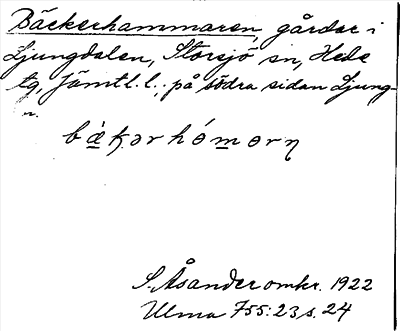 Bäckerhammaren, gårdar i
Ljungdalen, Storsjö sn, Hede
tg, Jämtl. l., på södra sidan Ljung-
n.
S. Åsander omkr. 1922
Ulma 755:23, s. 24